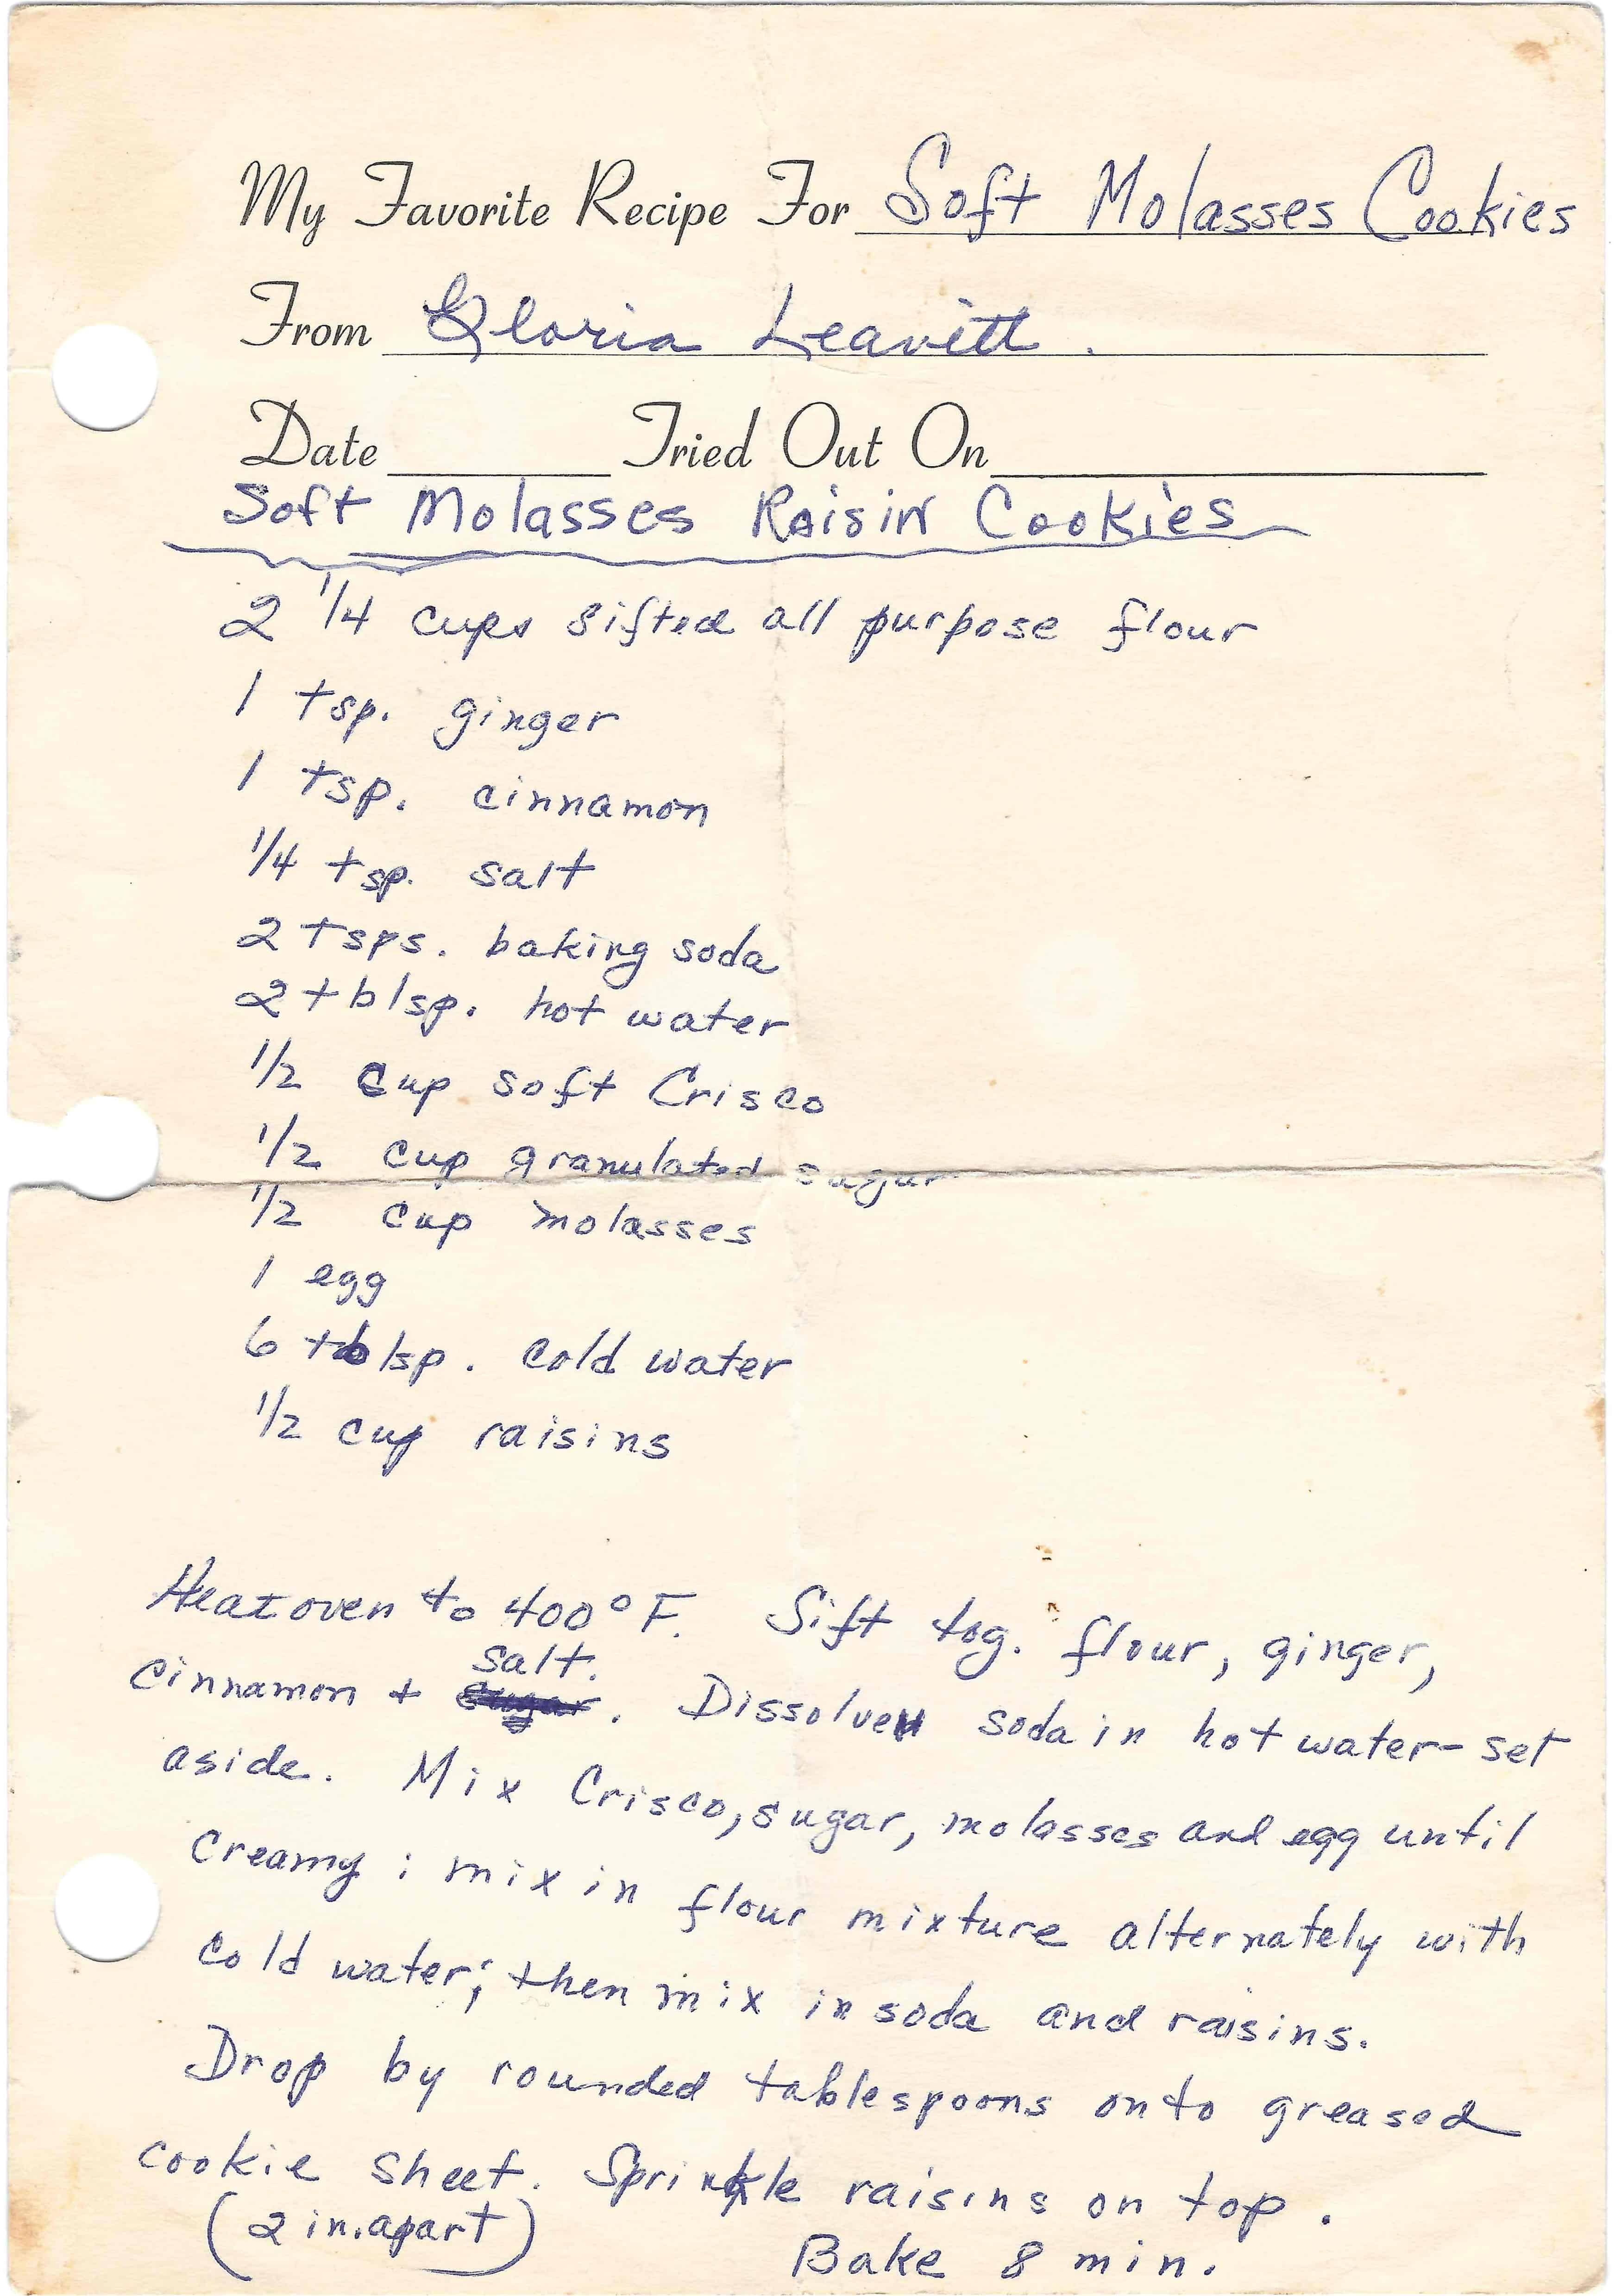 My Favorite Recipe For Soft Molasses Cookies
From Gloria Leavitt.
Date Tried Out On
Soft Molasses Raisin Cookies
2 1/4 cups sifted all purpose flour
1 tsp. ginger
1 tsp. cinnamon
1/4 tsp. salt
2 tsps. baking soda
2 tblsp. hot water
1/2 cup soft Crisco
1/2 cup granulated sugar
1/2 cup molasses
1 egg
6 tblsp. cold water
1/2 cup raisins
Heat oven to 400° F. Sift tog. flour, ginger,
salt.
cinnamon + sugar. Dissolve soda in hot water - set
aside. Mix Crisco, sugar, molasses and egg until
creamy; mix in flour mixture alternately with
cold water; then mix in soda and raisins.
Drop by rounded tablespoons onto greased
cookie sheet. Sprinkle raisins on top.
(2 in. apart)
Bake 8 min.